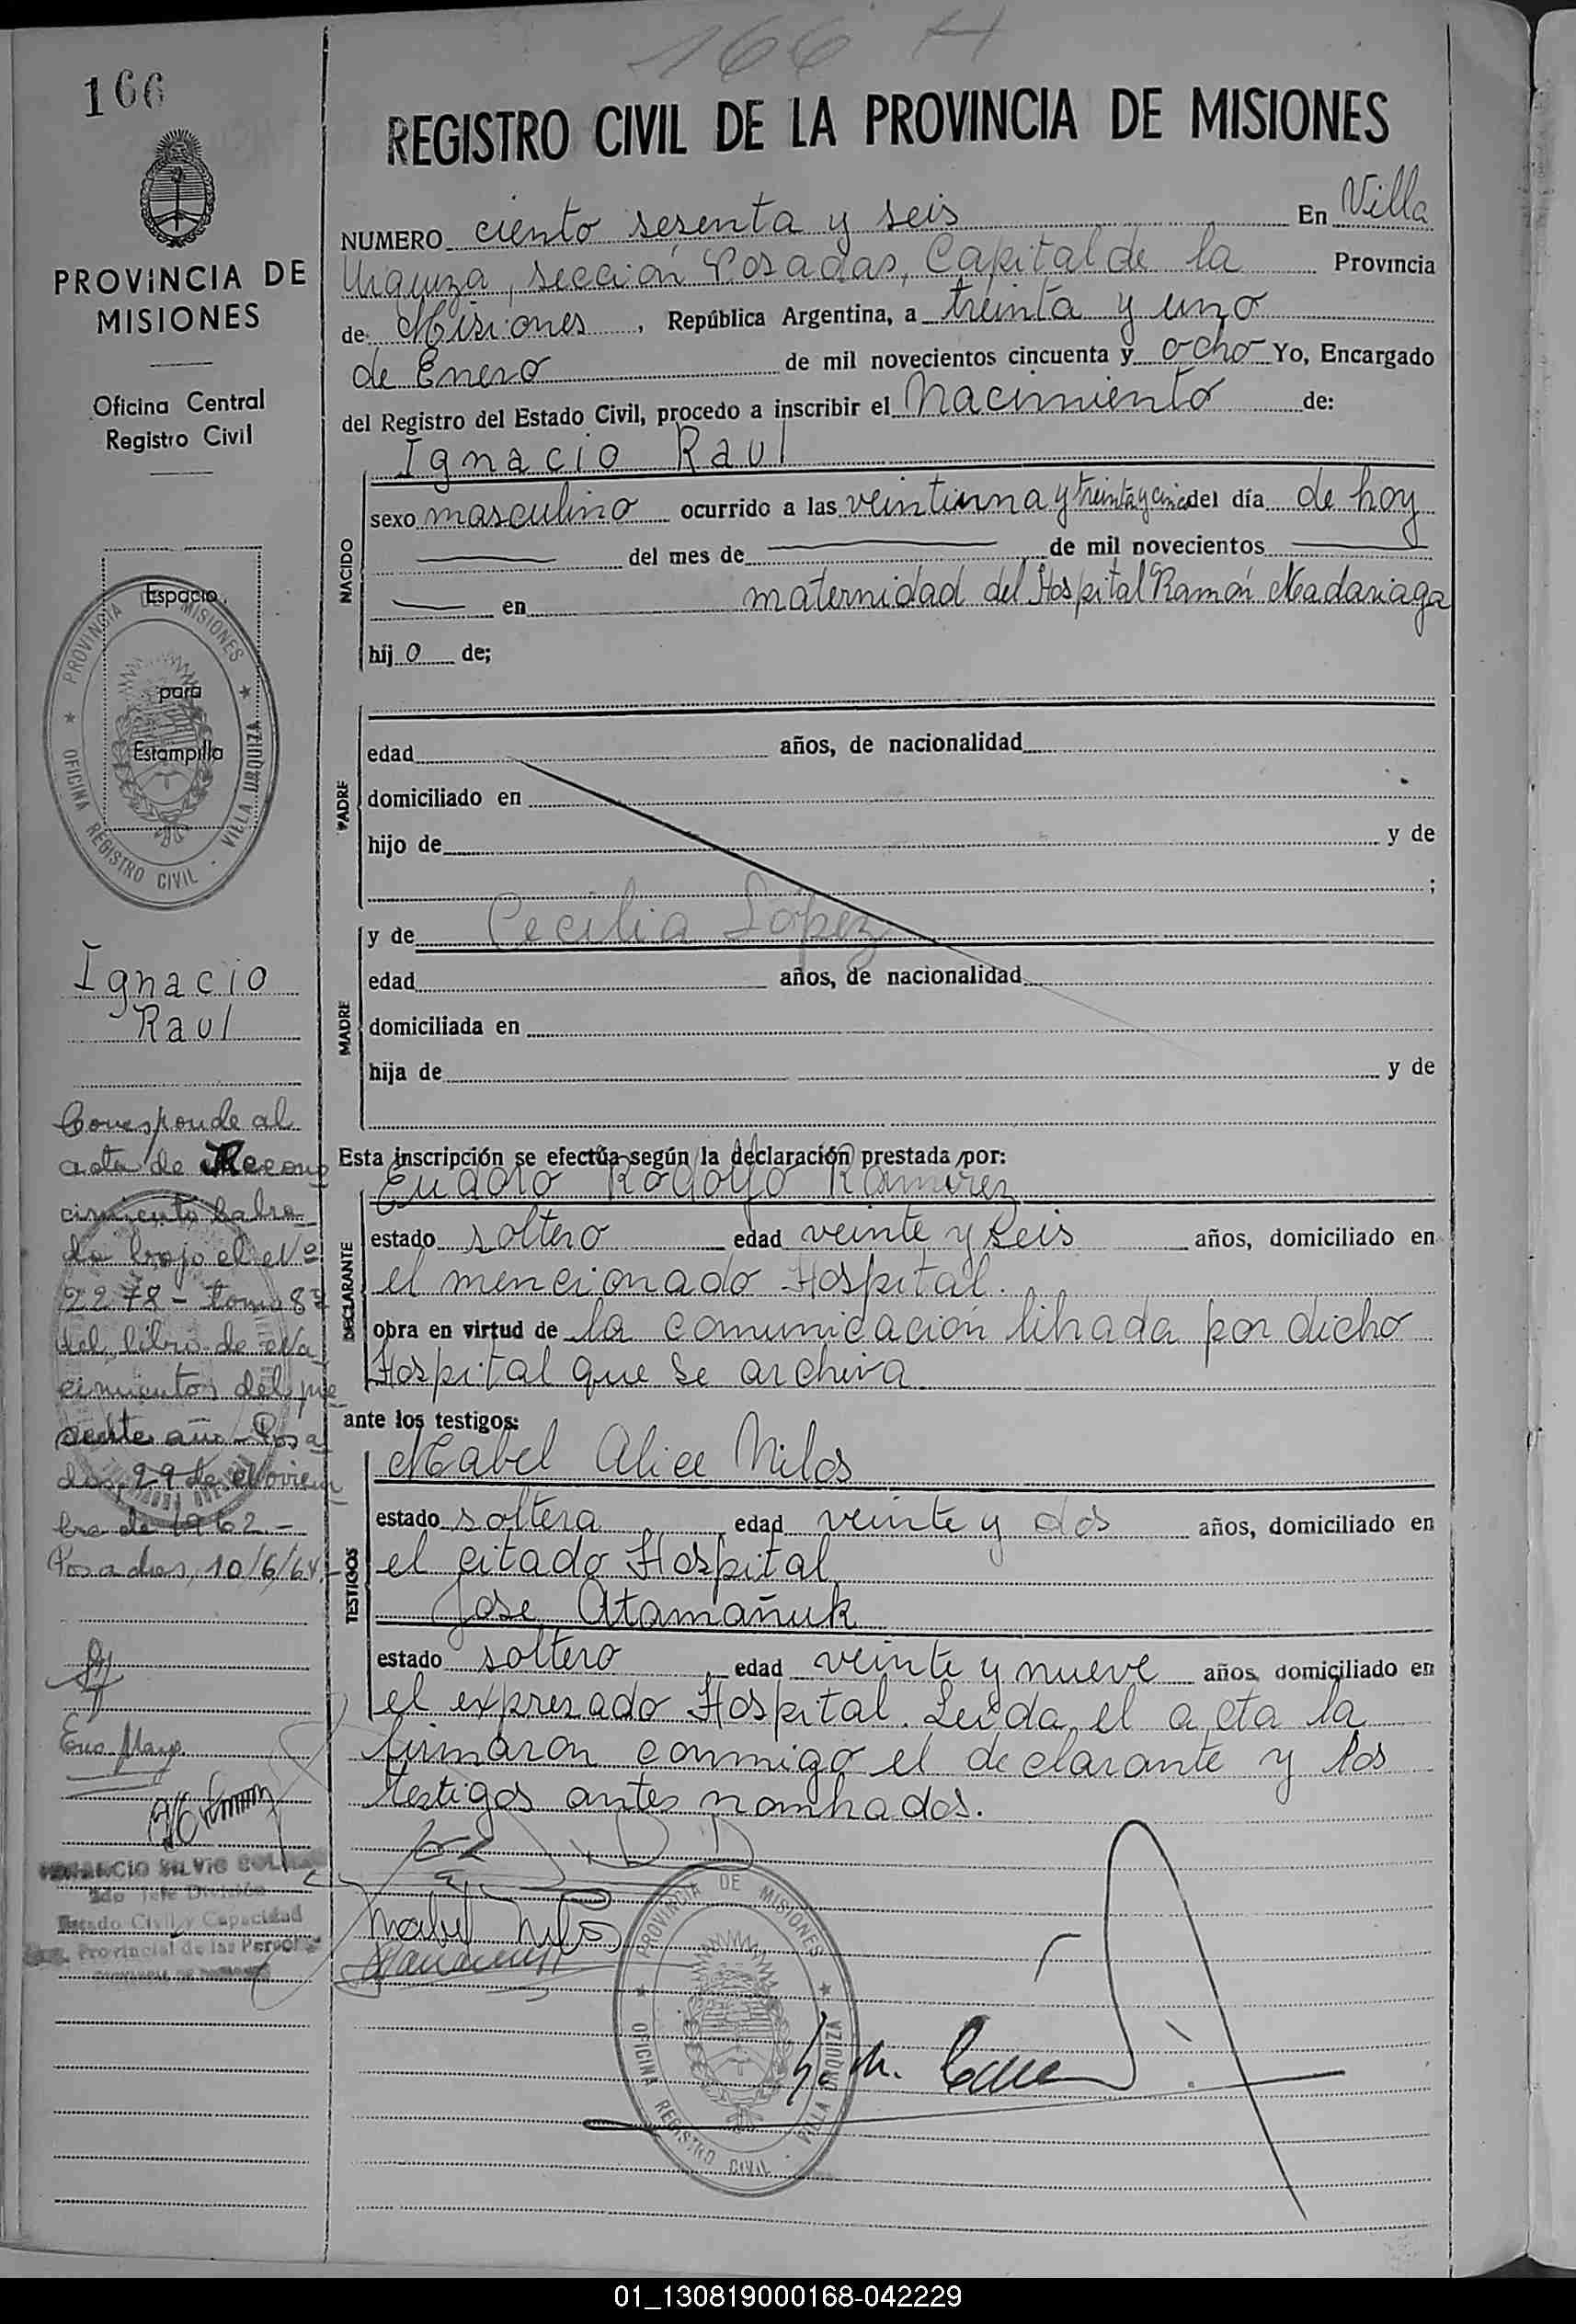 166 H
166
REGISTRO CIVIL DE LA PROVINCIA DE MISIONES
PROVINCIA DE
MISIONES
Oficina Central
Registro Civil
NUMERO ciento sesenta y seis En Villa
Urquiza, sección Posadas, Capital de la Provincia
de Misiones, República Argentina, a treinta y uno
de Enero de mil novecientos cincuenta y ocho Yo, Encargado
del Registro del Estado Civil, procedo a inscribir el Nacimiento de:
NACIDO
Ignacio Raul
sexo masculino ocurrido a las veintiuna y treinta y cinco del día de hoy
del mes de de mil novecientos
en maternidad del Hospital Ramón Madariaga
hij o de;
Espacio
para
Estampilla
PROVINCIA DE MISIONES
OFICINA REGISTRO CIVIL - VILLA URQUIZA
PADRE
edad años, de nacionalidad
domiciliado en
hijo de y de
;
MADRE
y de Cecilia Lopez
edad años, de nacionalidad
domiciliada en
hija de y de
Ignacio
Raul
Corresponde al
acta de Recono
cimiento labra-
do bajo el Nº
2278 - tomo 8º
del libro de Na
cimientos del pre
sente año - Posa
das, 29 de Noviem
bre de 1962 -
Posadas, 10/6/64.
Esta inscripción se efectúa según la declaración prestada por:
DECLARANTE
Eudoro Rodolfo Ramirez
estado soltero edad veinte y seis años, domiciliado en
el mencionado Hospital.
obra en virtud de la comunicación librada por dicho
Hospital que se archiva
ante los testigos:
TESTIGOS
Mabel Alice Nilos
estado soltera edad veinte y dos años, domiciliado en
el citado Hospital
Jose Atamañuk
estado soltero edad veinte y nueve años, domiciliado en
el expresado Hospital. Leida el acta la
firmaron conmigo el declarante y los
testigos antes nombrados.
SILVIO
2do Jefe División
Estado Civil y Capacidad
Provincial de las Personas
Mabel Nilos
PROVINCIA DE MISIONES
OFICINA REGISTRO CIVIL - VILLA URQUIZA
01_130819000168-042229